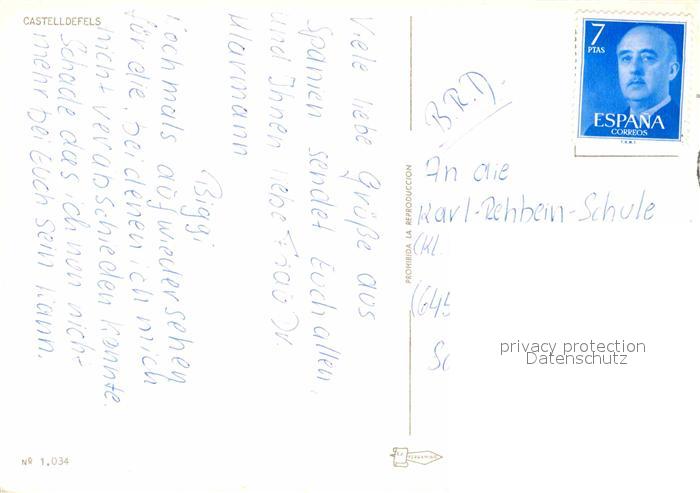 CASTELLDEFELS
Viele liebe Grüße aus
Spanien sendet Euch allen,
und Ihnen liebe Frau Dr.
Klarmann
Biggi
Nochmals aufwiedersehen
für die, bei denen ich mich
nicht verabschieden konnte.
Schade das ich nun nicht
mehr bei Euch sein kann.
Nº 1.034
PROHIBIDA LA REPRODUCCION
7
PTAS
ESPAÑA
CORREOS
B.R.D.
An die
Karl-Rehbein-Schule
(Kl.
(645
privacy protection
Datenschutz